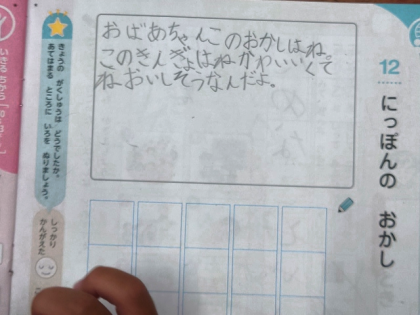 12
にっぽんの おかし
おばあちゃんこのおかしはね。
このきんぎょはね、かわいいくて
ね、おいしそうなんだよ。
きょうの がくしゅうは どうでしたか。
あてはまる ところに いろを ぬりましょう。
しっかり
かんがえた